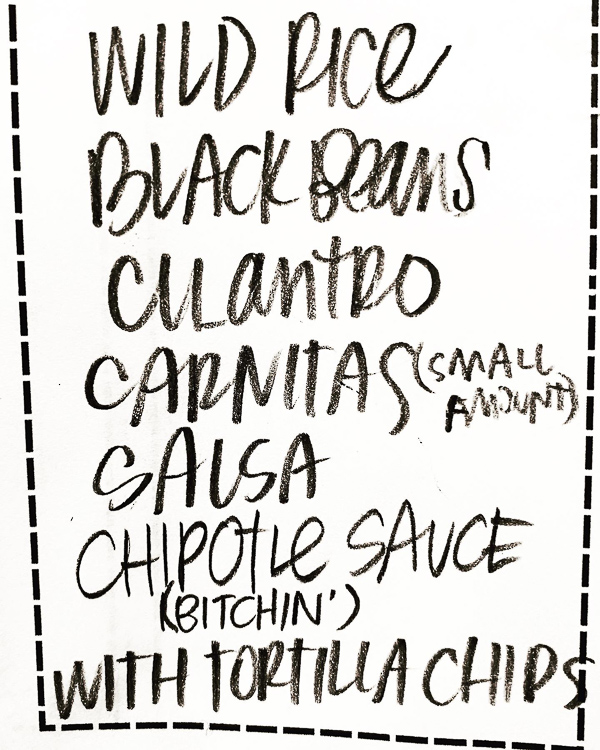 WILD RICE
BLACK BEANS
CILANTRO
CARNITAS (SMALL
AMOUNT)
SALSA
CHIPOTLE SAUCE
(BITCHIN')
WITH TORTILLA CHIPS